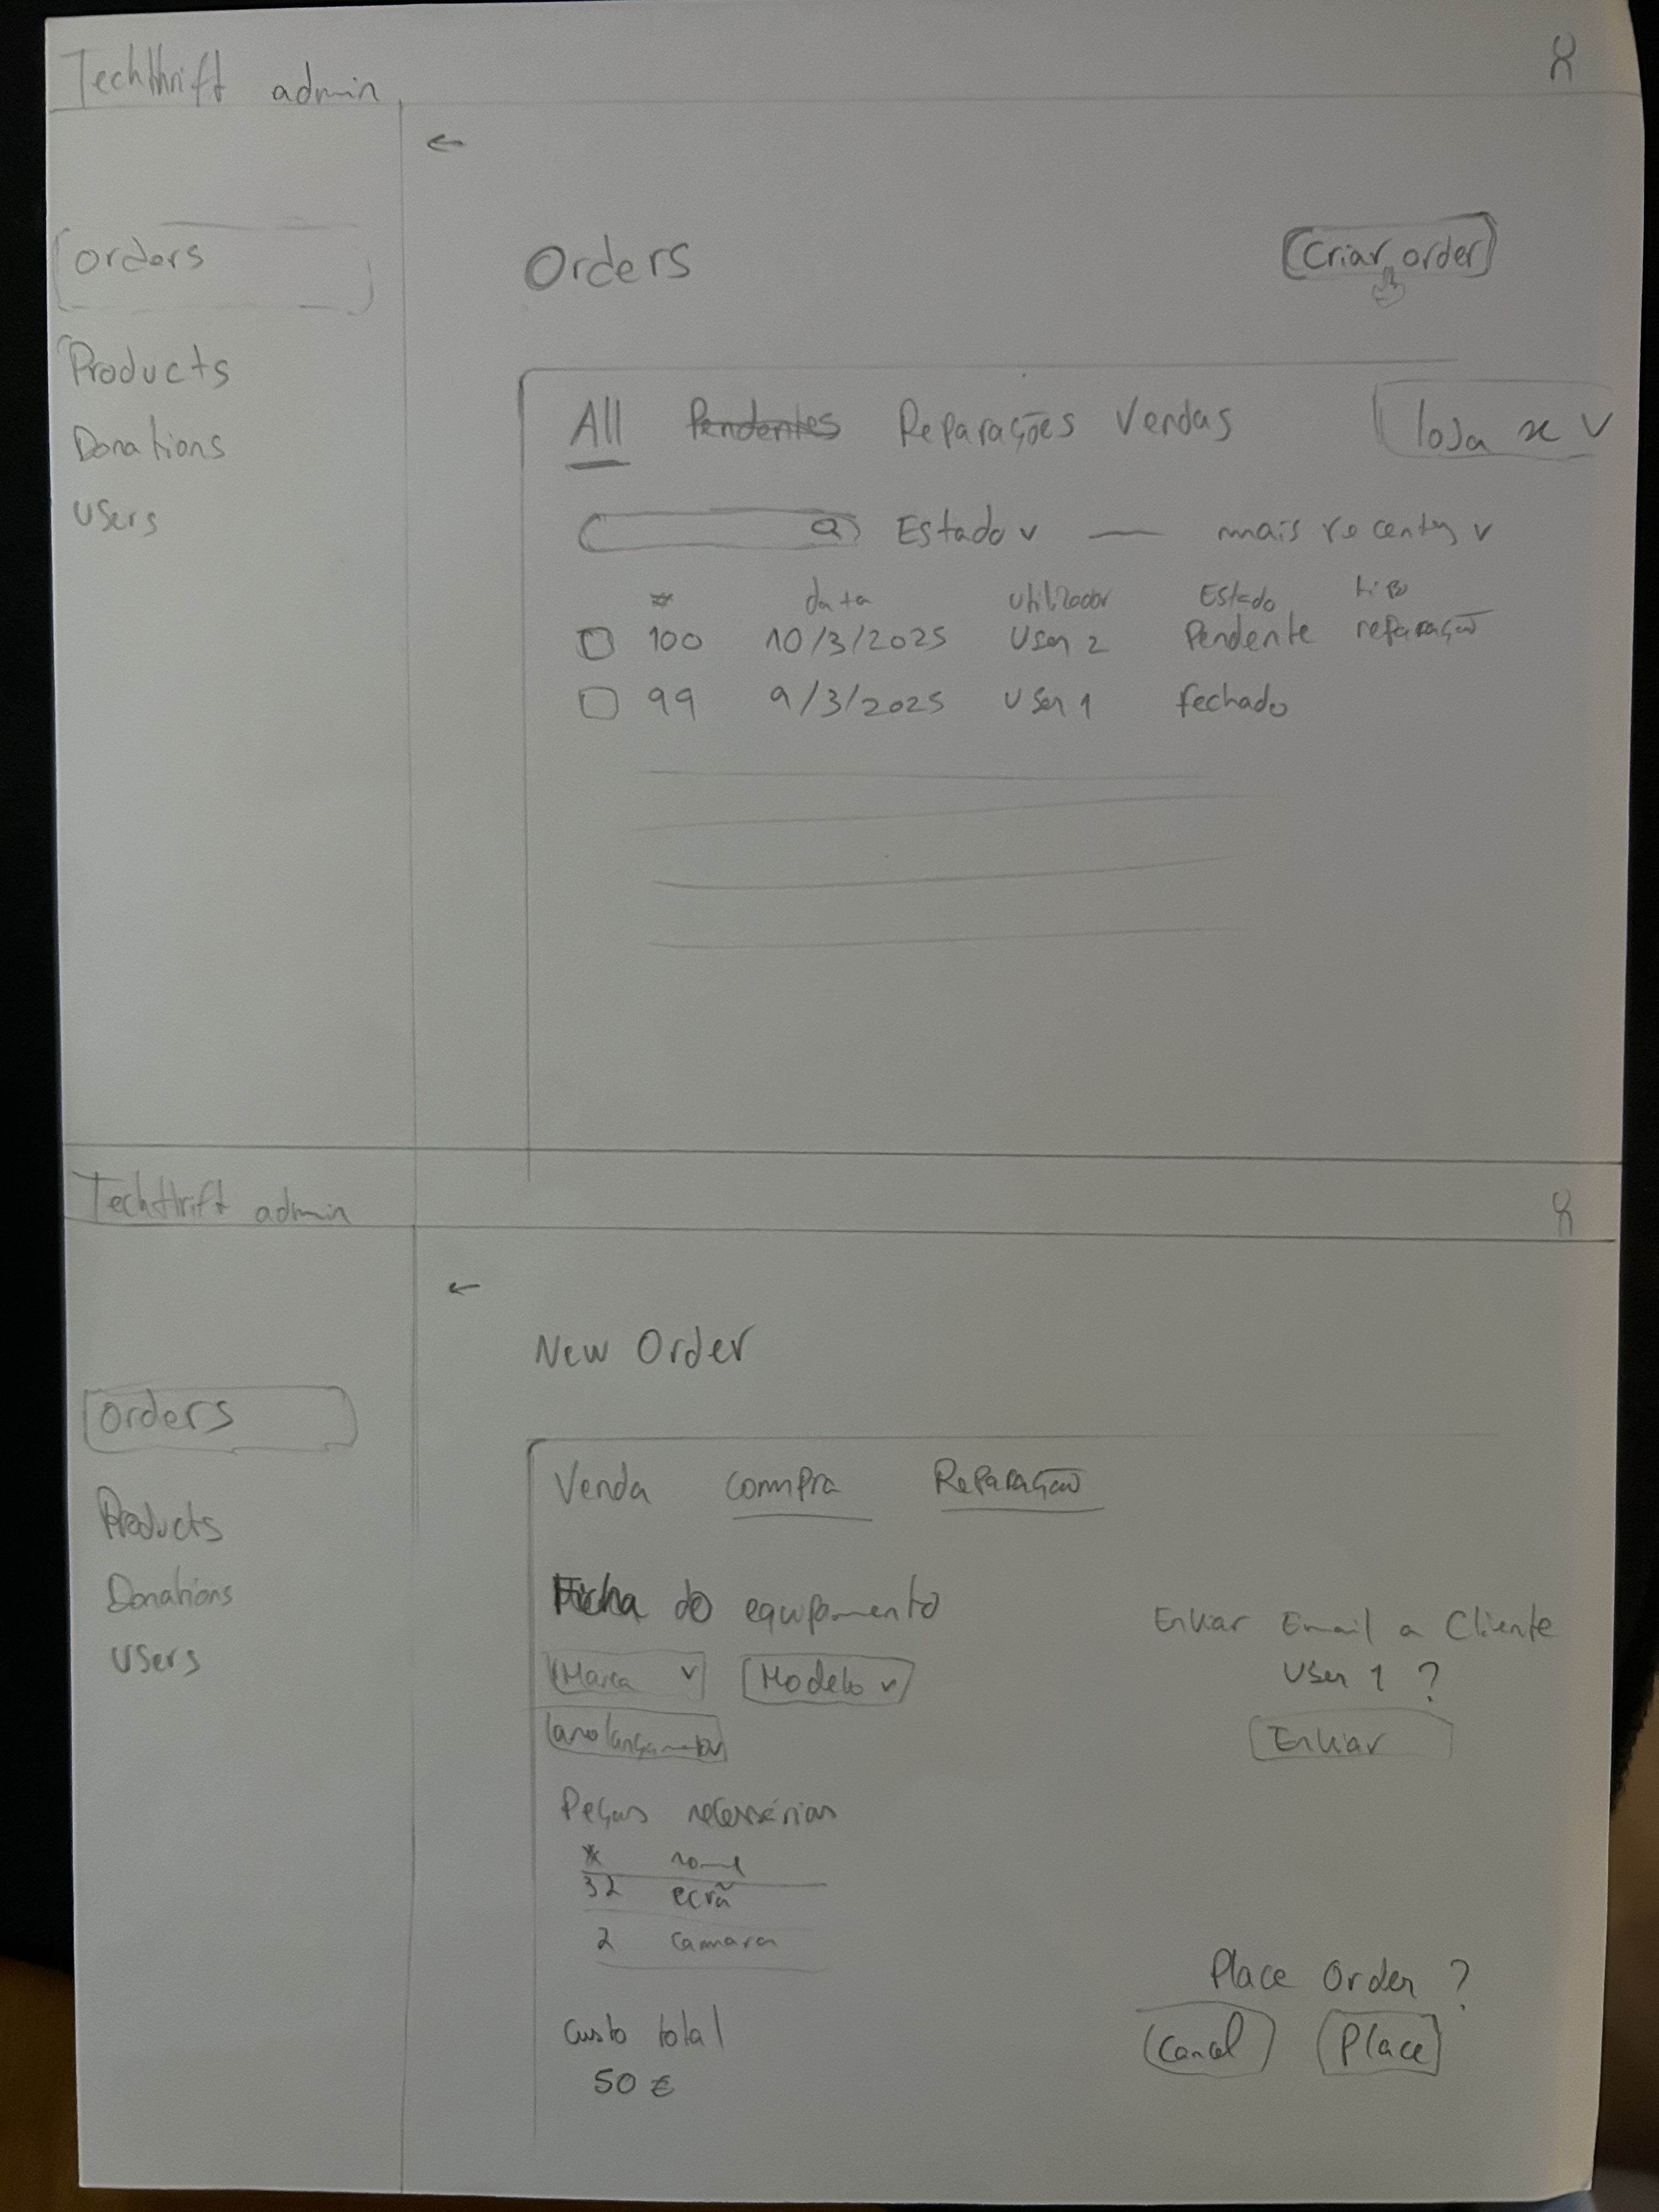 Techthrift admin
←
Orders
Products
Donations
Users
Orders
Criar order
All Pendentes Reparações Vendas
loja x v
Estado v — mais recentes v
# data utilizador Estado tipo
100 10/3/2025 User 2 Pendente reparação
99 9/3/2025 User 1 fechado
Techthrift admin
←
Orders
Products
Donations
Users
New Order
Venda Compra Reparação
Ficha do equipamento
Marca v Modelo v
ano lançamento
Enviar Email a Cliente
User 1 ?
Enviar
Peças necessárias
# nome
32 ecrã
2 camara
Custo total
50 €
Place Order ?
Cancel Place